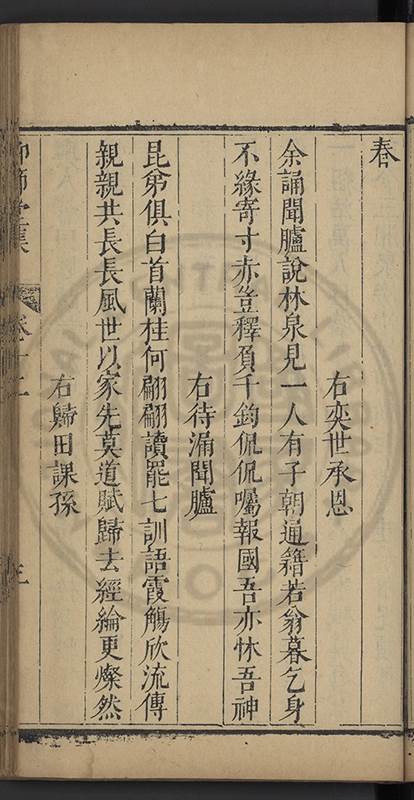 春
右奕世承恩
余誦聞臚說林泉見一人有子朝通籍若翁暮乞身
不緣寄寸赤豈釋負千鈞侃侃囑報國吾亦怵吾神
右待漏聞臚
昆弟俱白首蘭桂何翩翩讀罷七訓語霞觴欣流傳
親親共長長風世以家先莫道賦歸去經綸更燦然
右歸田課孫
卷十二